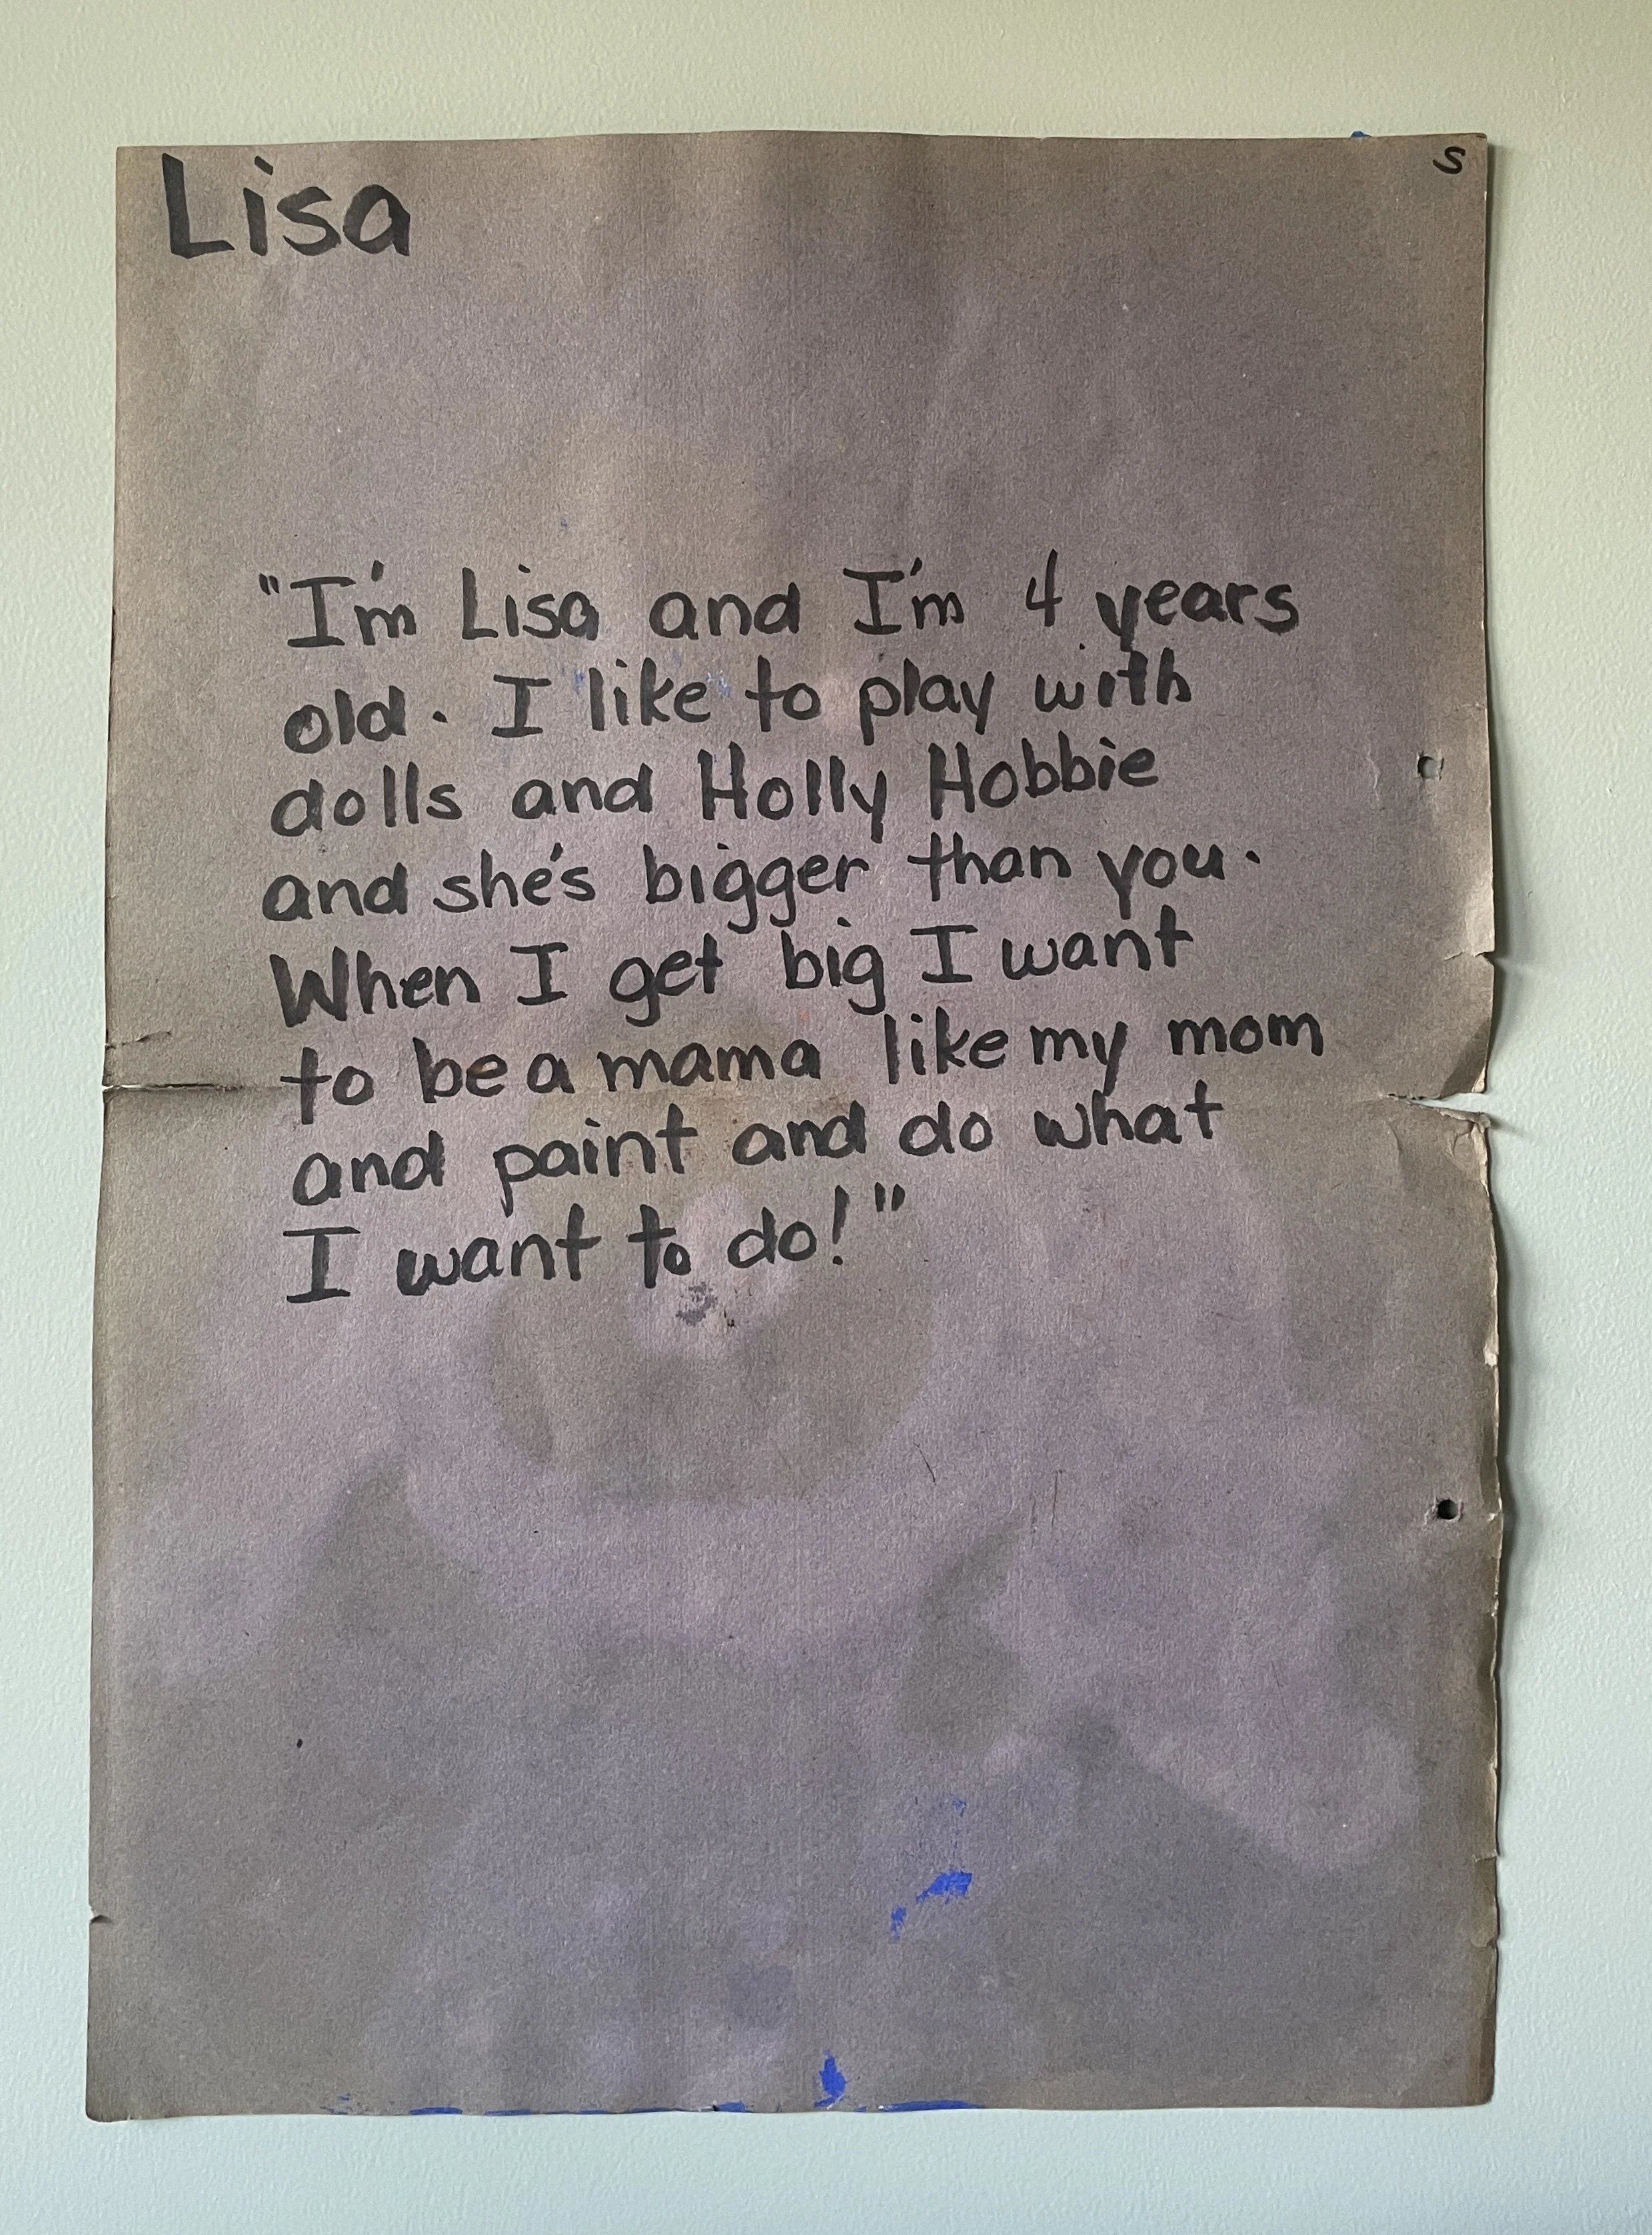 Lisa
S
"I'm Lisa and I'm 4 years
old. I like to play with
dolls and Holly Hobbie
and she's bigger than you.
When I get big I want
to be a mama like my mom
and paint and do what
I want to do!"